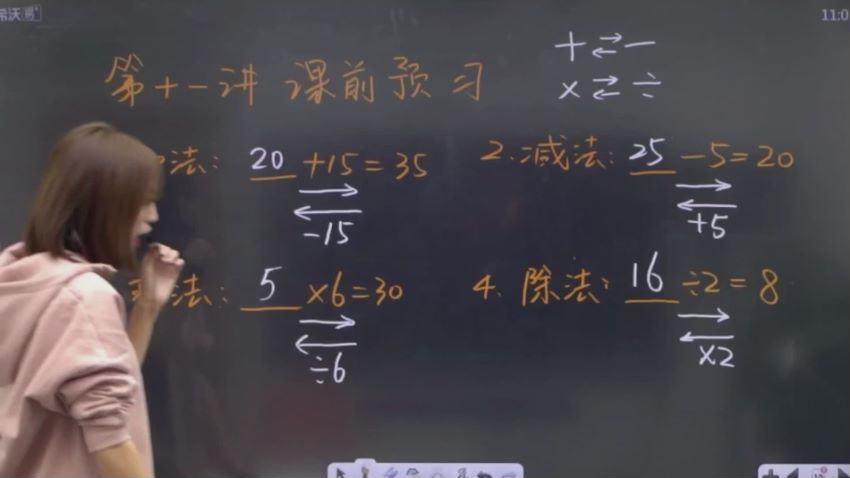 希沃易+
11:0
第十一讲 课前预习
+ ⇄ −
× ⇄ ÷
法: 20 +15=35
-15
2.减法: 25 -5=20
+5
法: 5 ×6=30
÷6
4.除法: 16 ÷2=8
×2